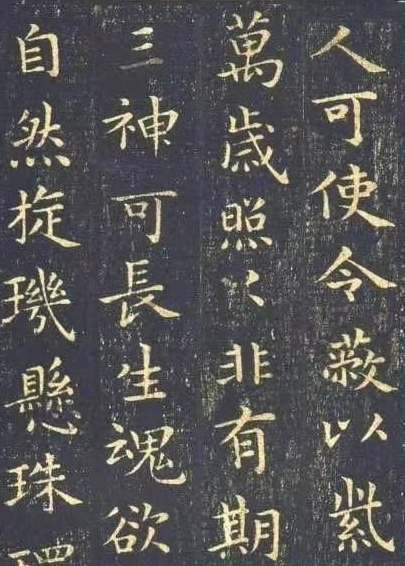 人可使令蔽以紫
萬歲照〻非有期
三神可長生魂欲
自然旋璣懸珠環